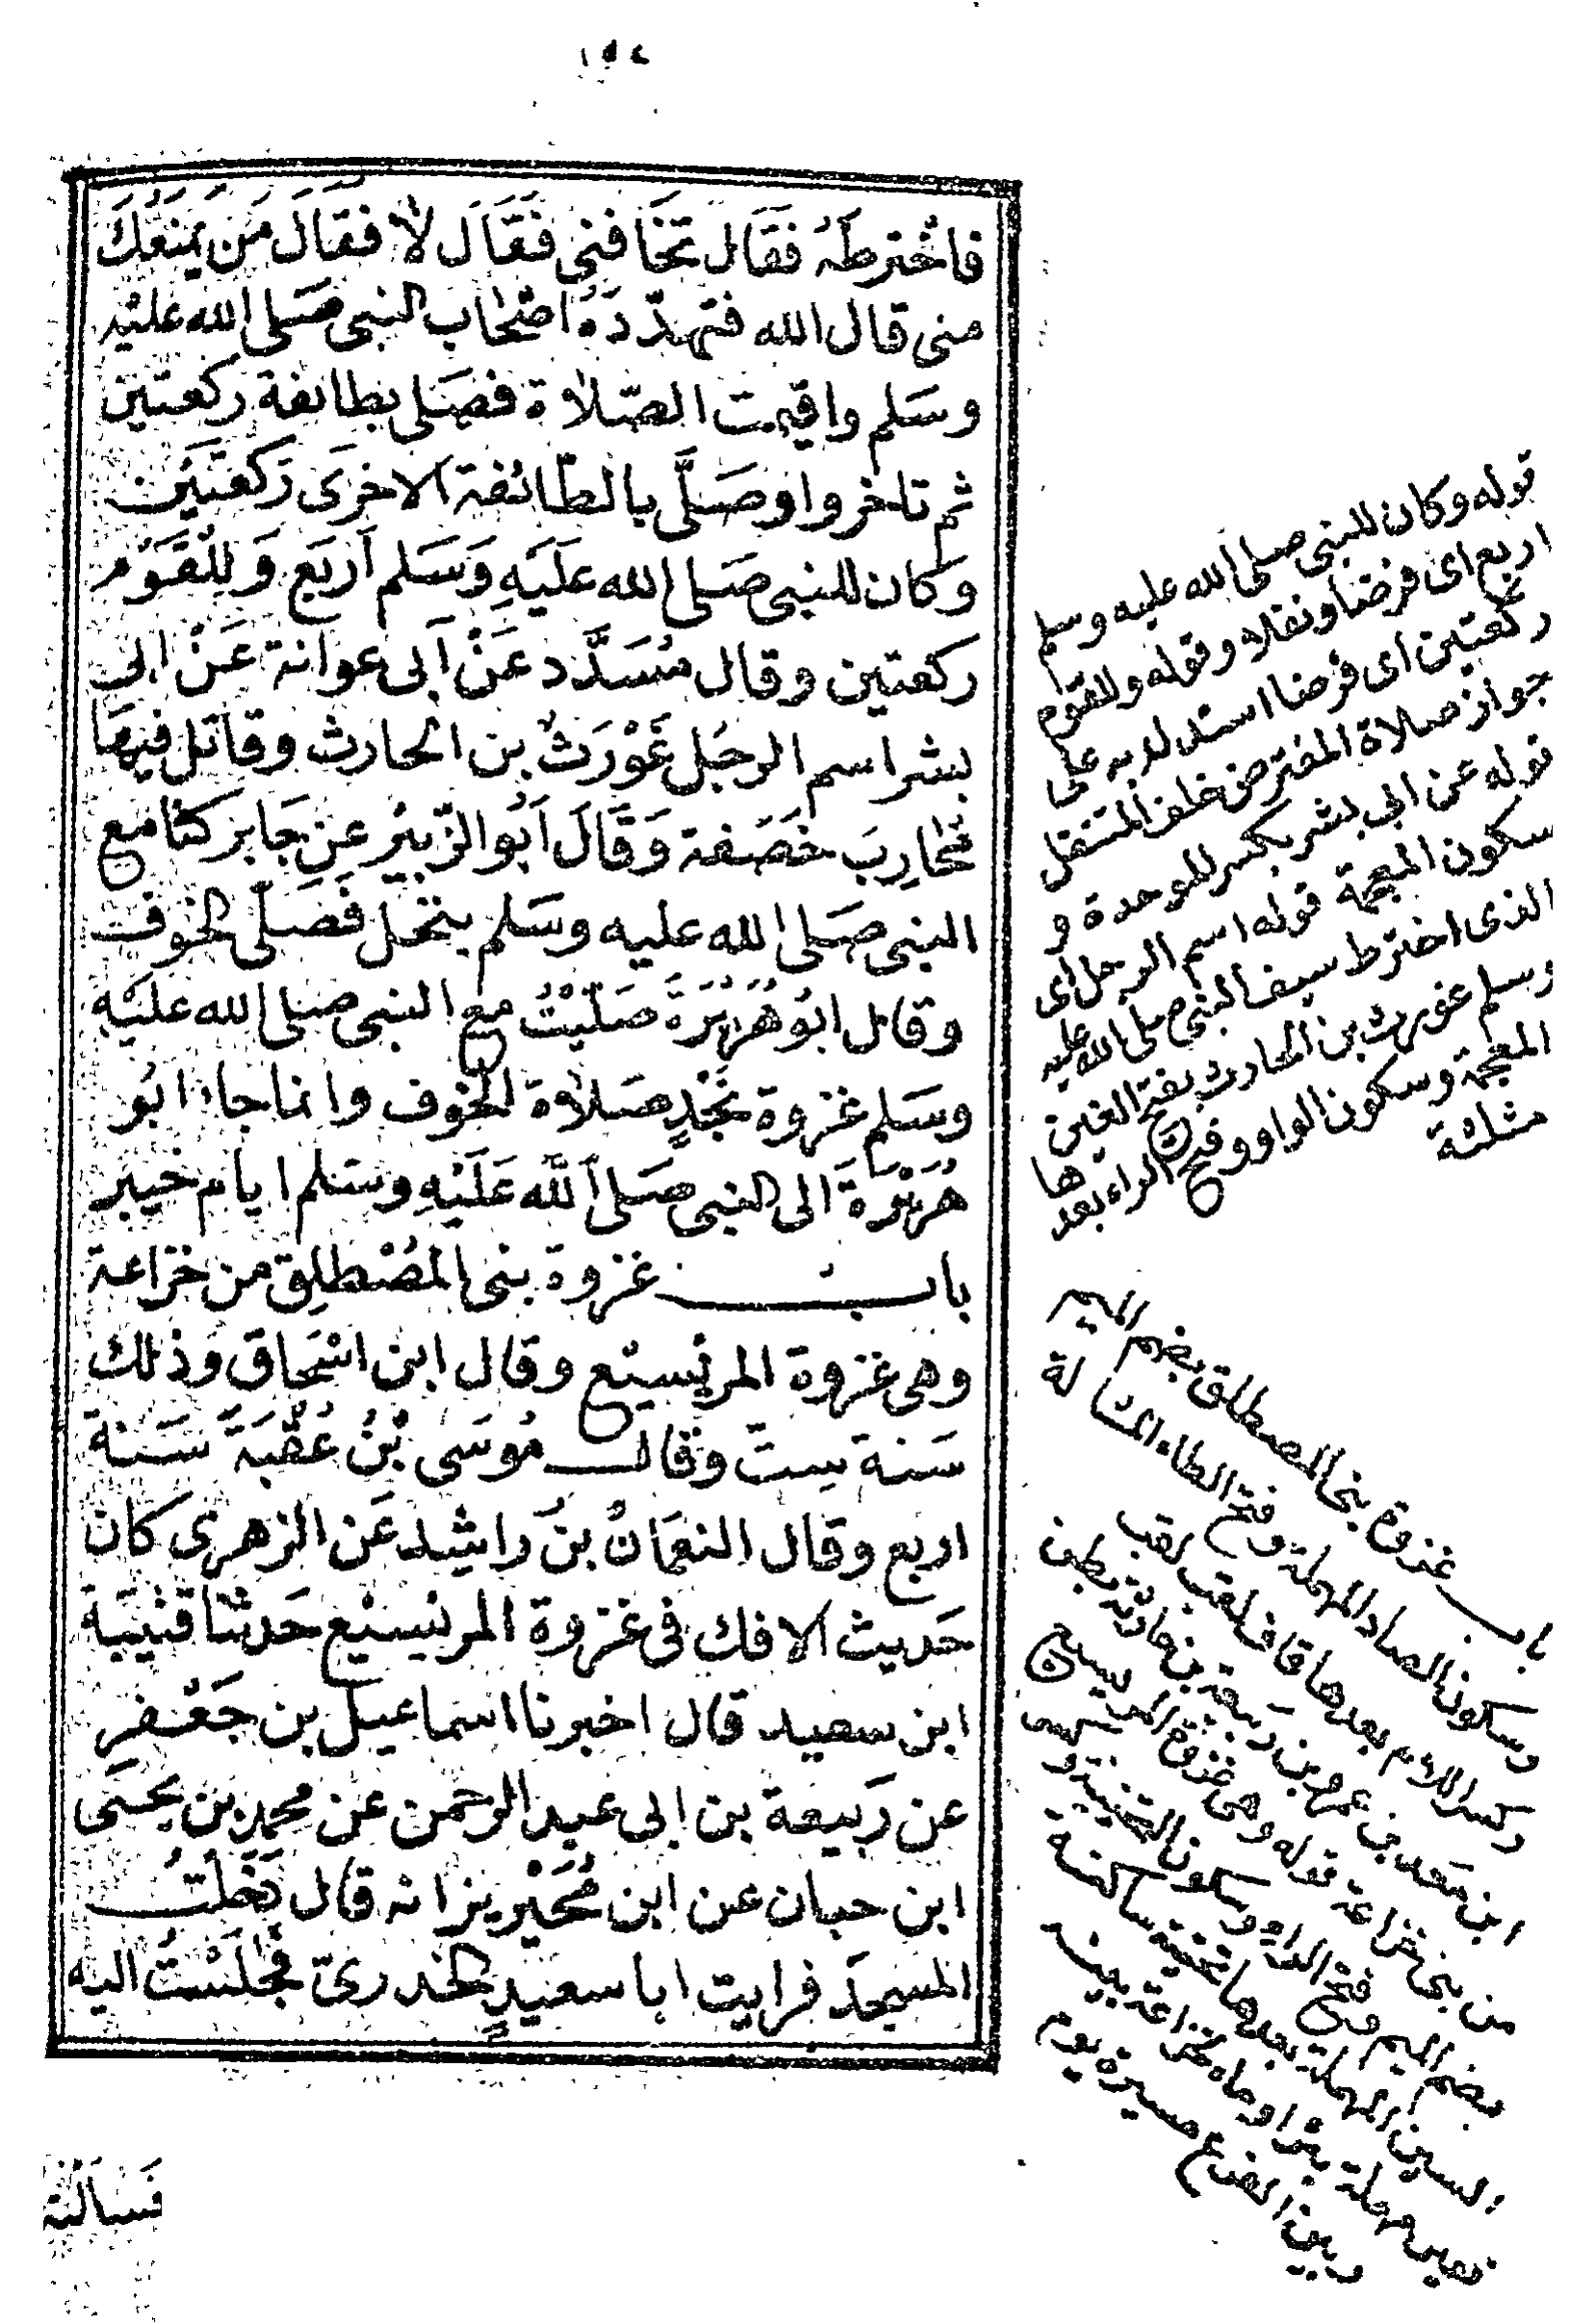 ١٥٤
فاخْترطَهُ فقَال تخَافنى فَقَالَ لاٰ فقَالَ مَن يَمنَعُكَ
منى قال الله فتهدّدَهُ اصْحَاب النبى صَلى الله عليْه
وسَلم واقيمت الصّلاٰة فصَلى بطائفة ركعتين
ثم تاخروا وصَلَّى بالطّائفة الاخرَى رَكعَتَيَن
وَكان للنبى صَلى الله عَلَيَهِ وَسَلم اَربَع وَللْقَوْم
ركعتين وقال مُسَدَّد عَنْ اَبى عوانة عَنْ ابى
بشر اسم الرجُل غَوْرَثُ بن الحارث وقاتَل فيهَا
مُحَارِبَ خَصَفة وَقَالَ اَبُو الزّبيْر عَن جَابر كنّا مَع
النبى صَلى الله عليه وسَلم بنخل فَصَلّى الخوف
وقال ابوُ هُرَيْرَةَ صَلّيْتُ مع النبى صلى الله عليَهِ
وسَلم غزوة نَجْدٍ صَلاٰة الخوف وانما جاء ابُو
هُرَيْرَةَ الى النبى صَلى اللّه عَلَيْهِ وسَلم ايام خيبر
باب غزوة بنى المصْطلِق من خزاعة
وهى غزوة المريْسيْع وقال ابن اسْحَاق وَذلك
سَنة سِتّ وَقال مُوسَى بْنُ عُقْبَةَ سَنة
اربع وقال النعمَانُ بنُ رَاشِد عَن الزهرى كان
حَديث الافك فى غزوة المريسيْع حَدثنا قتيْبَة
ابن سعيد قال اخبرنا اسماعيل بن جَعْفرِ
عن رَبيعة بن ابى عبد الرحمن عن محمد بن يحيَى
ابن حبان عن ابن مُحَيْريز انه قال دَخلتُ
المسجدَ فرايت ابا سعيدٍ الخدرىّ فجَلسْتُ اليه
فسَالتهُ
قوله وكان للنبى صلى الله عليه وسلم
اربع اى فرضا ونفلا وقوله وللقوم
ركعتين اى فرضا استدل به على
جواز صلاة المفترض خلف المتنفل
قوله عن ابى بشر بكسر الموحدة و
سكون المعجمة قوله اسم الرجل اى
الذى اخترط سيف النبى صلى الله عليه
وسلم غورث بن الحارث بفتح الغين
المعجمة وسكون الواو وفتح الراء بعدها
مثلثة
باب غزوة بنى المصطلق بضم الميم
وسكون الصاد المهملة وفتح الطاء المشالة
وكسر اللام بعدها قاف لقب
ابن سعد بن عمرو بن ربيعة بن حارثة بطن
من بنى خزاعة قوله وهى غزوة المريسيع
بضم الميم وفتح الراء وسكون التحتيتين
السين المهملة بعدها تحتية ساكنة
فعين مهملة ماء خزاعة بينه
وبين الفرع مسيرة يوم